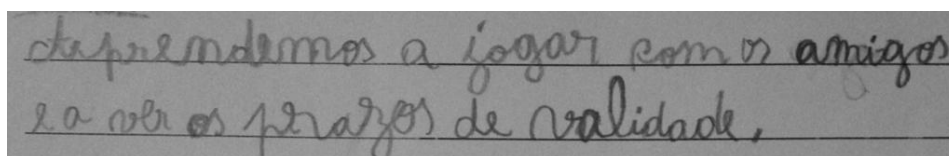 Aprendemos a jogar com os amigos
e a ver os prazos de validade.